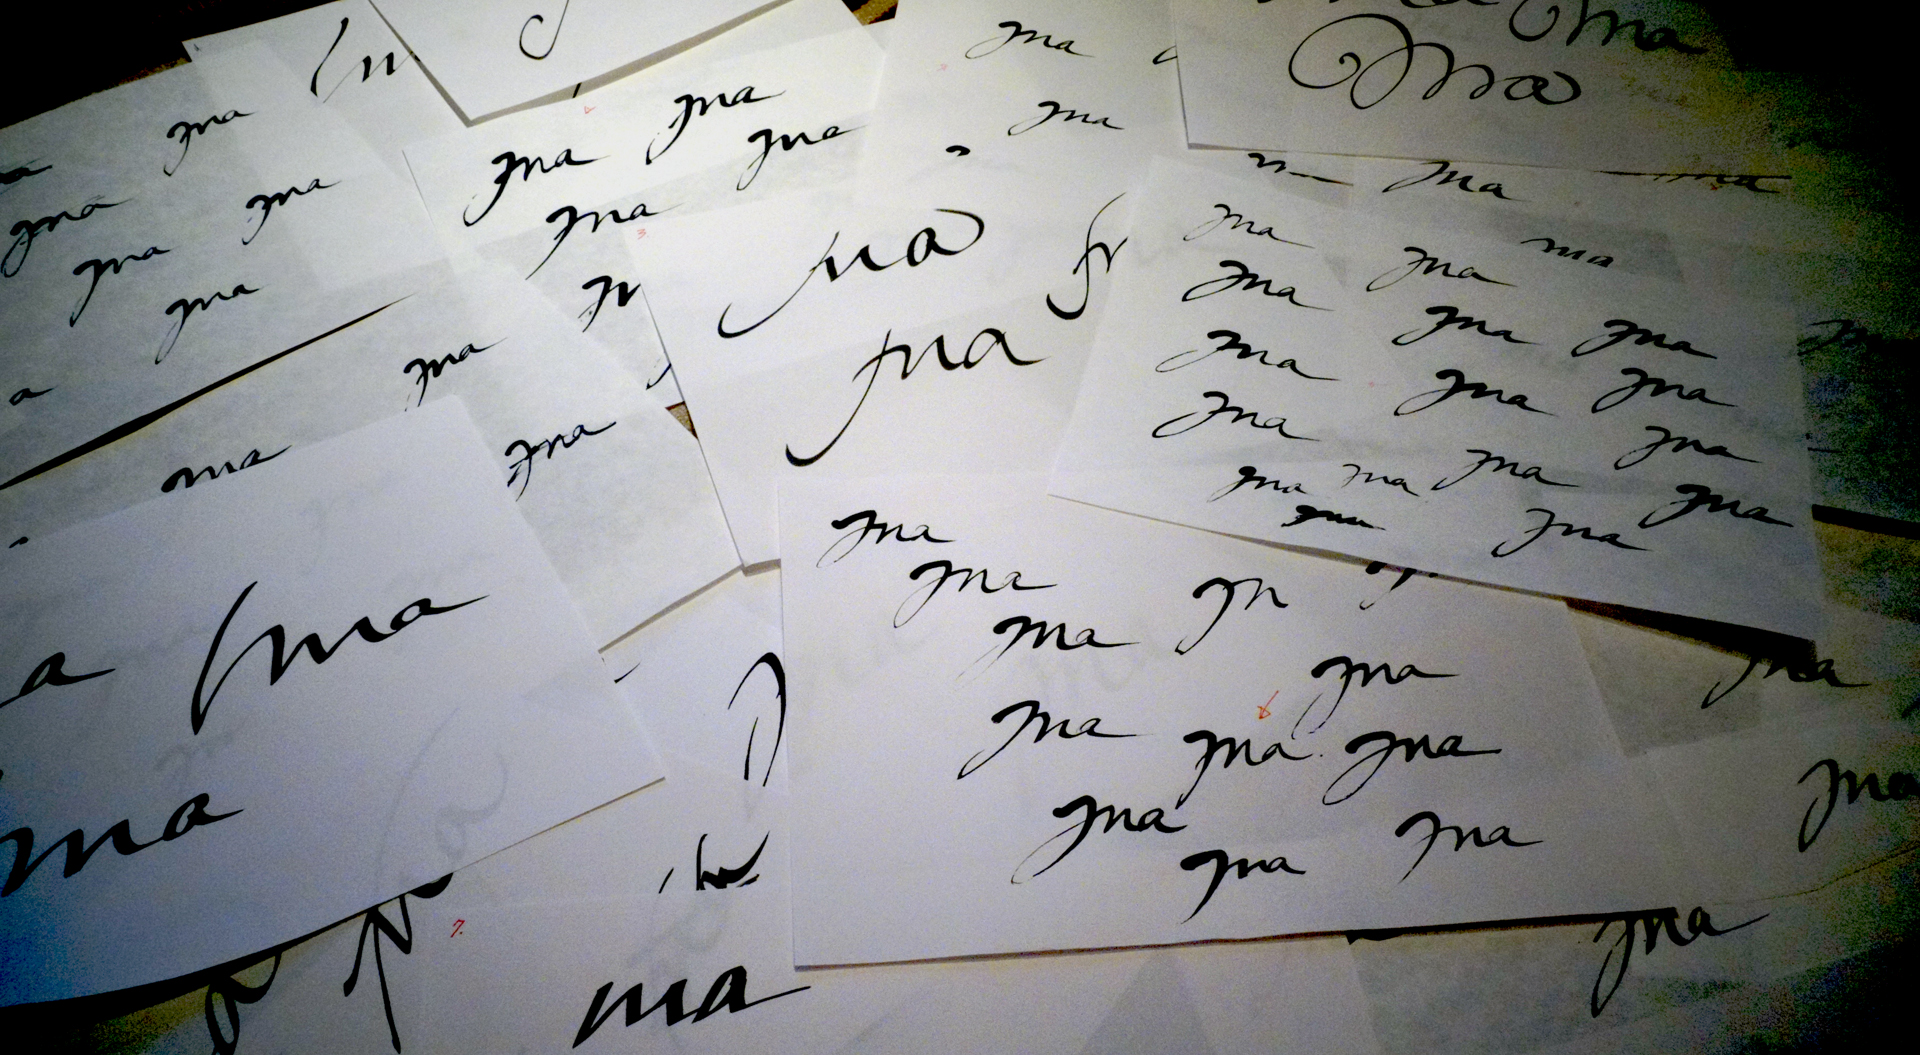 ma
ma
ma
ma
ma ma
ma ma
ma
ma ma
ma ma
ma ma
ma
ma
ma
ma
ma ma
ma
ma
ma
ma
ma ma
ma
ma ma
ma ma ma
ma ma ma
ma ma
ma ma ma ma
ma
ma
ma
ma
ma
ma
ma ma ma
ma ma
ma
ma
ma
ma
ma
7.
ma
ma